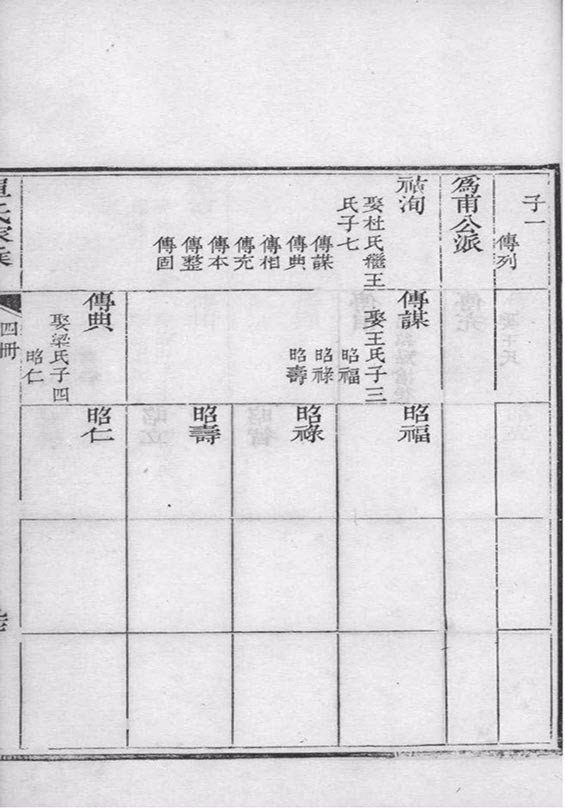 子一
傳列
為甫公派
祐洵
娶杜氏繼王
氏子七
傳謀
傳典
傳相
傳充
傳本
傳整
傳固
傳謀
娶王氏子三
昭福
昭祿
昭壽
昭福
昭祿
昭壽
傳典
娶梁氏子四
昭仁
昭仁
四冊